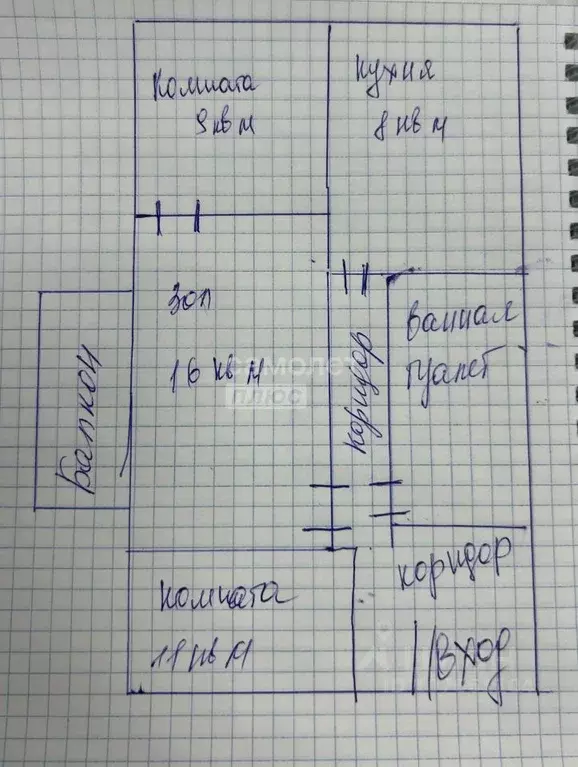 Комната
9 кв м
Кухня
8 кв м
Зал
16 кв м
Ванная
туалет
коридор
Балкон
Комната
11 кв м
коридор
Вход
самолет
плюс